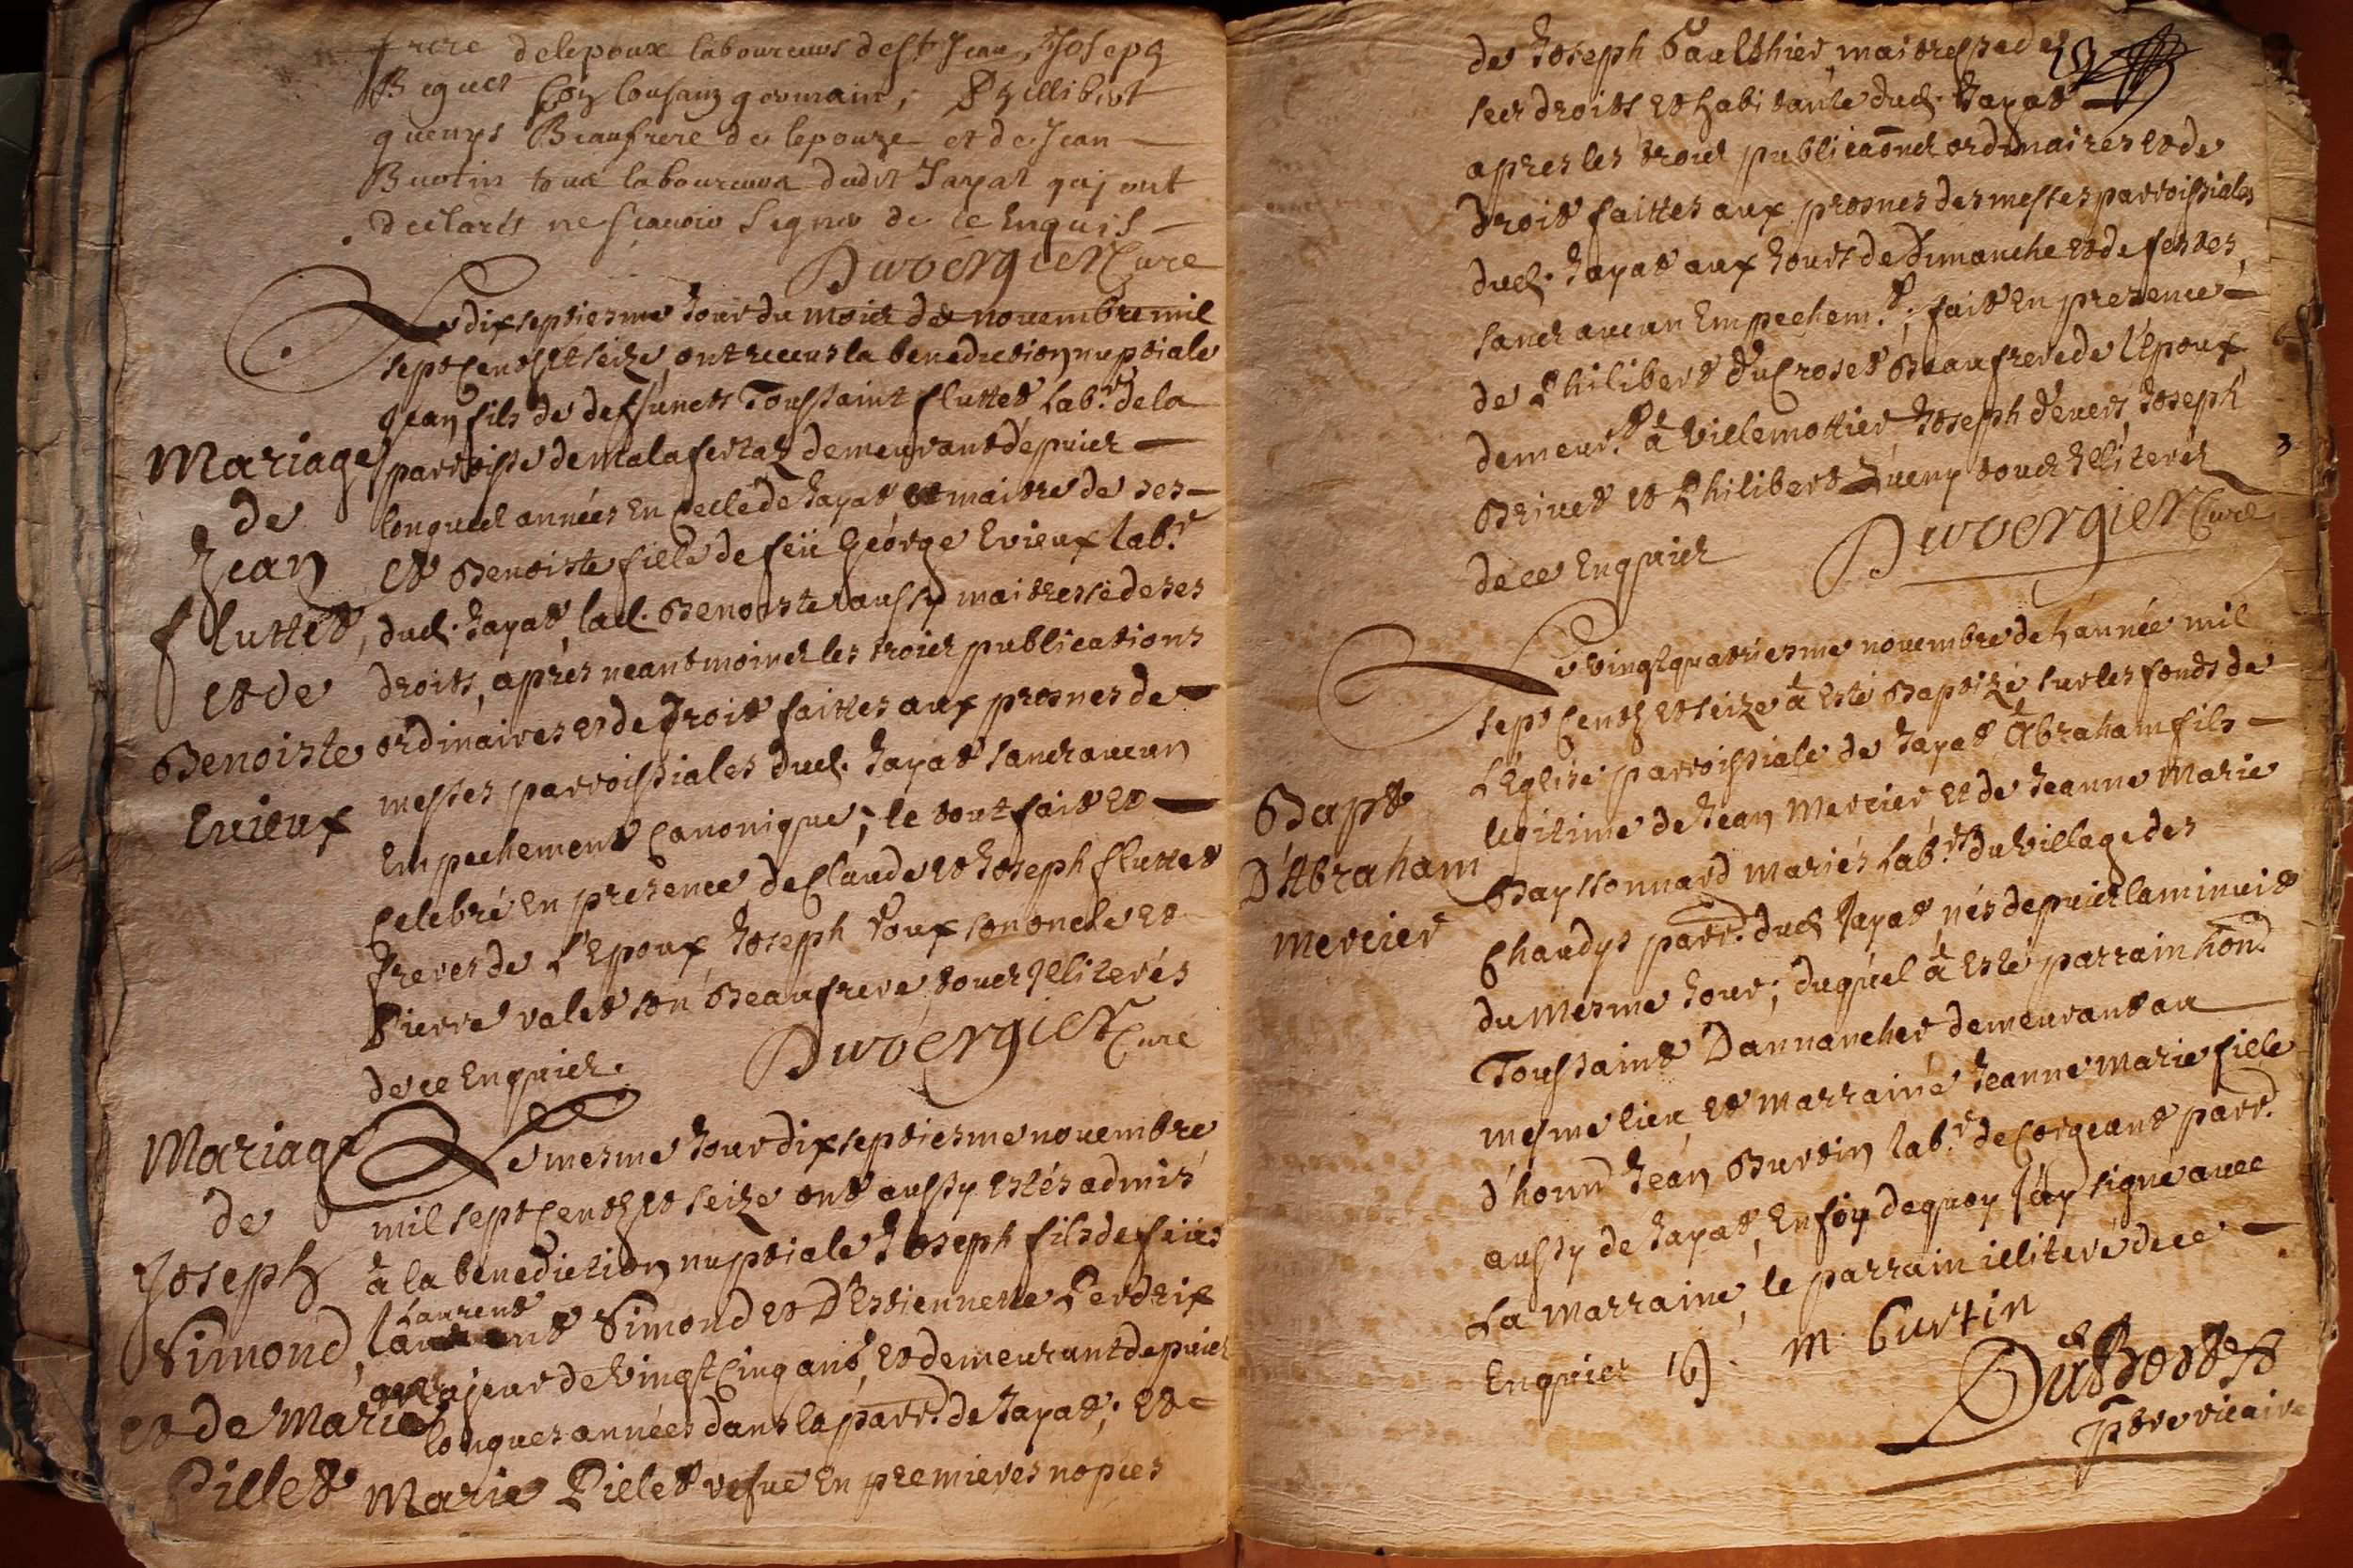 frere delepoux laboureurs de st Jean, Joseph
Beguet son cousainz germains, Phillibert
quenys Beaufrere de lepouze et de Jean
Buotin tous laboureurs dudit Jayat qui ont
declarés ne scauoir signer de ce Enquis
Duvergier Curé
Le dixseptiesme Jour du mois de nouembre mil
sept cents et seize, ont receus la benediction nuptiale
Jean fils de deffuncts Toussaint fluttet Lab.r de la
parroisse de malafertaz demeurant depuis
longues années En Celle de Jayat, et maitre de ses
Et Benoiste fille de feü George Evieux lab.r
dud. Jayat, lad. Benoiste aussy maitresse de ses
droits, apres neantmoins les trois publications
ordinaires et de droit faittes aux prosnes de
messes parroissiales dud. Jayat sans aucun
Empechement Canonique; le tout fait et
Celebré En presence de Claude et Joseph fluttet
freres de L'Epoux, Joseph Poux son oncle et
Pierre valet son Beaufrere tous Illiterés
de ce Enquis.
Duvergier Curé
Mariage
de
Jean
fluttet,
et de
Benoiste
Evieux
Le mesme Jour dixseptiesme nouembre
mil sept cents et seize ont aussy estés admis
à la benediction nuptiale Joseph fils de feüs
Laurent
Simond et D'Estiennette Perdrix
majeur de vingt cinq ans, et demeurant depuis
longues années dans la parr. de Jayat; et
Marie Pillet vefue En premieres nopces
Mariage
de
Joseph
Simond,
et de Marie
Pillet
de Joseph Paulthier, maitresse de
ses droits et habitante dud. Jayat
apres les trois publicaons ordinaires et de
droit faittes aux prosnes des messes parroissiales
dud. Jayat aux Jours de Dimanche et de festes,
sans aucun Empechem.t; fait En presence
de Philibert ducroset Beaufrere de l'Epoux
demeur.t à Villemottier, Joseph devers, Joseph
Brivet et Philibert Queny tous Illiterés
de ce Enquis
Duvergier Curé
Le vingt quatriesme nouembre de l'année mil
sept cents et seize à esté Baptizé sur les fonds de
L'Eglise parroissiale de Jayat Abraham fils
legitime de Jean Mercier, et de Jeanne Marie
Bayssonnard mariés Lab.rs du Village des
Chaudys parr. dud Jayat, nés depuis la minuit
du mesme Jour; duquel à esté parrain hon.
Toussaint Dannancher demeurant au
mesme lieu, et marraine Jeanne Marie fille
d'honn Jean Burtin lab.r de Corgeant parr.
aussy de Jayat, En foy de quoy J'ay signé avec
La marraine, le parrain illiteré de ce
Enquis
M. burtin
Dusordet
ptre vicaire
Bapt
D'Abraham
mercier